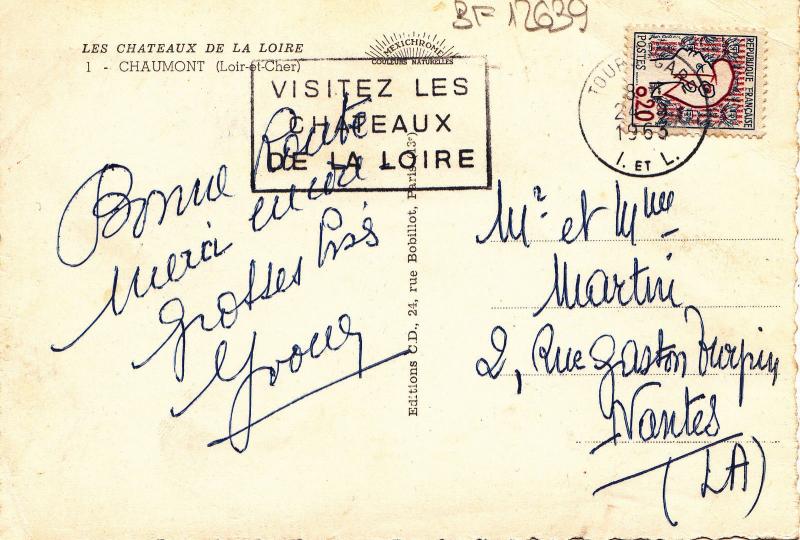 BF 12639
LES CHATEAUX DE LA LOIRE
1 - CHAUMONT (Loir-et-Cher)
MEXICHROME
COULEURS NATURELLES
VISITEZ LES
CHATEAUX
DE LA LOIRE
REPUBLIQUE FRANÇAISE
POSTES
0,20
TOURS GARE
1963
I. ET L.
Bonne Route
Merci
Grosses Bises
Yvonne
Editions C.D., 24, rue Bobillot, Paris (13e)
Mr et Mme
Martin
2, Rue Gaston Turpin
Nantes
(LA)